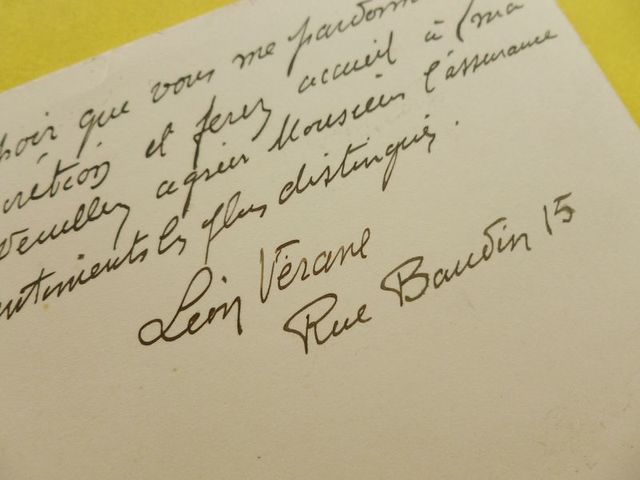 que vous me pardonn
et ferez accueil à (ma
Veuillez agréer Monsieur l'assurance
sentiments les plus distingués.
Léon Vérane
Rue Baudin 15